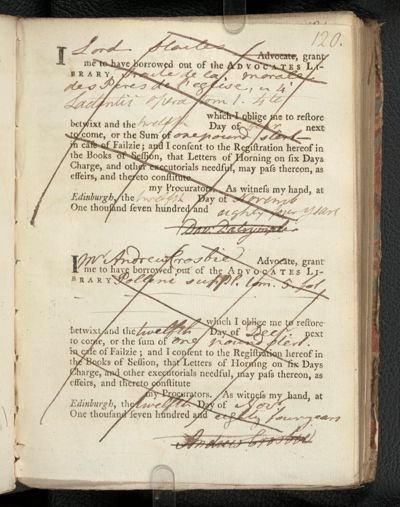 120.
I Lord Hailes Advocate, grant
me to have borrowed out of the ADVOCATES LI-
BRARY, Traité de la morale
des Peres de l'Eglise, in 4º
Lactantii opera tom. 1. 4to
which I oblige me to restore
betwixt and the twelfth Day of next
to come, or the Sum of one pound sterl
in case of Failzie; and I consent to the Registration hereof in
the Books of Session, that Letters of Horning on six Days
Charge, and other executorials needful, may pass thereon, as
effeirs, and thereto constitute
my Procurators. As witness my hand, at
Edinburgh, the twelfth Day of Novemb
One thousand seven hundred and eighty four years
Dav: Dalrymple
I Mr Andrew Crosbie Advocate, grant
me to have borrowed out of the ADVOCATES LI-
BRARY, suppl. tom. 5 fol
which I oblige me to restore
betwixt and the twelfth Day of Decr. next
to come, or the sum of one pound sterl.
in case of Failzie; and I consent to the Registration hereof in
the Books of Session, that Letters of Horning on six Days
Charge, and other executorials needful, may pass thereon, as
effeirs, and thereto constitute
my Procurators. As witness my hand, at
Edinburgh, the twelfth Day of Novr
One thousand seven hundred and eighty four years
Andrew Crosbie